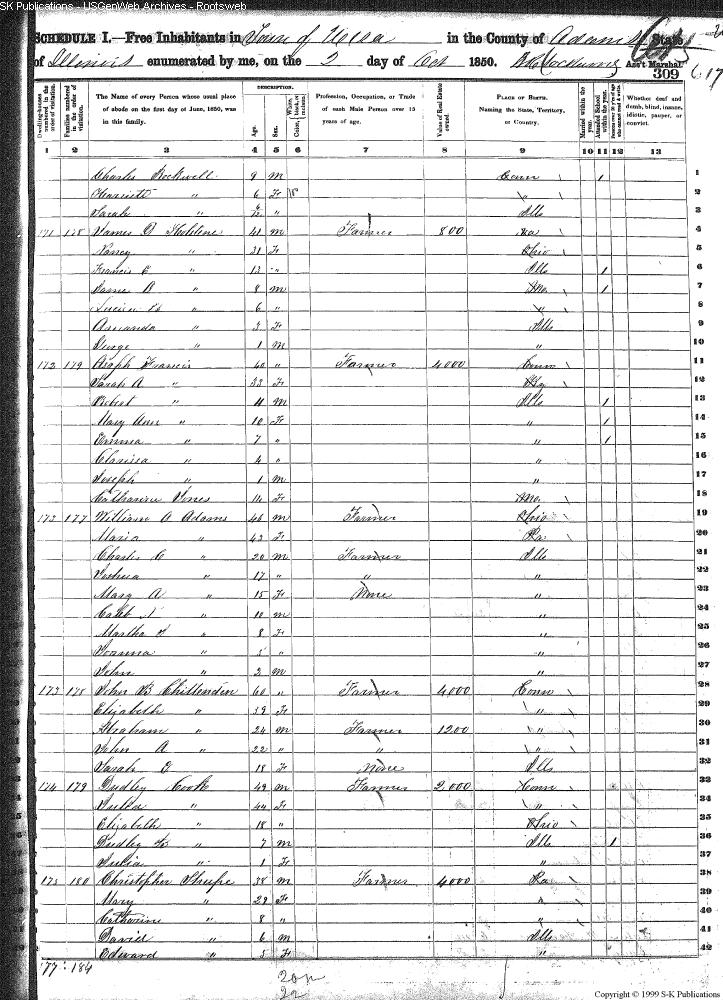 SK Publications - USGenWeb Archives - Rootsweb
SCHEDULE I.—Free Inhabitants in Town of Ursa in the County of Adams State
of Illinois enumerated by me, on the 2 day of Oct 1850. Ass't Marshal.
309
617
Dwelling-houses numbered in the order of visitation.
Families numbered in the order of visitation.
The Name of every Person whose usual place of abode on the first day of June, 1850, was in this family.
DESCRIPTION.
Age.
Sex.
White, black, or mulatto. Color,
Profession, Occupation, or Trade of each Male Person over 15 years of age.
Value of Real Estate owned.
PLACE OF BIRTH. Naming the State, Territory, or Country.
Married within the year.
Attended School within the year.
Persons over 20 y'rs of age who cannot read & write.
Whether deaf and dumb, blind, insane, idiotic, pauper, or convict.
1 2 3 4 5 6 7 8 9 10 11 12 13
Charles Rockwell 9 m Conn 1 1
Henriett " 6 F " 2
Sarah " F Ills 3
171 178 James 41 m Farmer 800 4
Nancy " 31 F Ohio 5
Francis E " 13 " Ills 1 6
James B " 8 m Mo. 1 7
" 6 " " 8
Amanda " 3 F Ills 9
George " 1 m " 10
172 179 Asaph Francis 40 " Farmer 4000 Conn 11
Sarah A " 33 F Ky 12
Robert " 11 m Ills 1 13
Mary Ann " 10 F " 1 14
Emma " 7 " " 1 15
Clarissa " 4 " " 16
Joseph " 1 m " 17
Catharine Jones 14 F Mo. 18
173 177 William A Adams 46 m Farmer Ohio 19
Maria " 43 F 20
Charles C " 20 m Farmer Ills 21
Joshua " 17 " " " 22
Mary A " 15 F None " 23
Caleb " 10 m " 24
Martha " 8 F " 25
Joanna " 5 " " 26
John " 2 m " 27
173 178 John B Chittenden 60 " Farmer 4000 Conn 28
Elizabeth " 59 F " 29
Abraham " 24 m Farmer 1200 " 30
John A " 22 " " " 31
Sarah E " 18 F None Ills 32
174 179 Dudley Cook 49 m Farmer 2,000 Conn 33
Julia " 44 F " 34
Elizabeth " 18 " Ohio 35
Dudley " 7 m Ills 1 36
Julia " 1 F " 37
175 180 Christopher Shupe 38 m Farmer 4000 Pa 38
Mary " 29 F " 39
Catharine " 8 " " 40
David " 6 m Ills 41
Edward " 5 F " 42
177 : 184
Copyright © 1999 S-K Publications